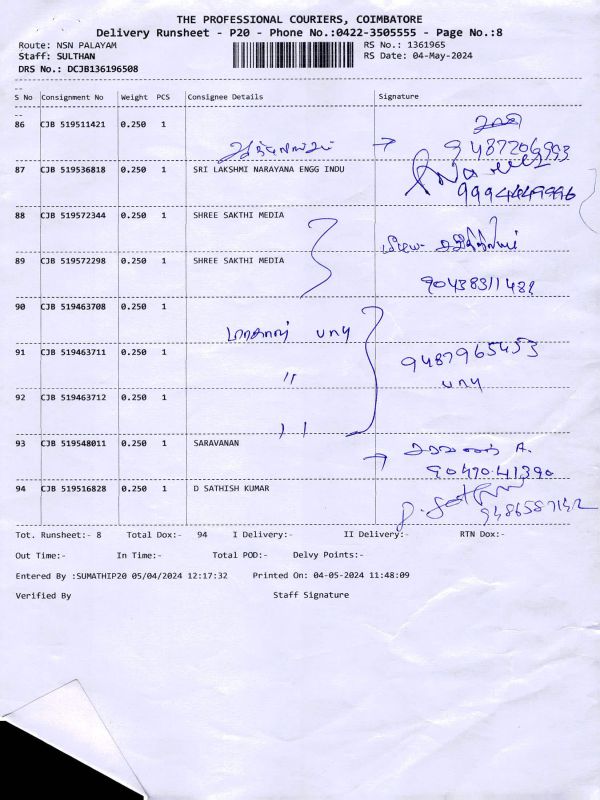 THE PROFESSIONAL COURIERS, COIMBATORE
Delivery Runsheet - P20 - Phone No.:0422-3505555 - Page No.:8
Route: NSN PALAYAM RS No.: 1361965
Staff: SULTHAN RS Date: 04-May-2024
DRS No.: DCJB136196508
S No Consignment No Weight PCS Consignee Details Signature
86 CJB 519511421 0.250 1
9487206993
87 CJB 519536818 0.250 1 SRI LAKSHMI NARAYANA ENGG INDU
9994449996
88 CJB 519572344 0.250 1 SHREE SAKTHI MEDIA
89 CJB 519572298 0.250 1 SHREE SAKTHI MEDIA
90 CJB 519463708 0.250 1
பாபு
91 CJB 519463711 0.250 1 9487965453
" பாபு
92 CJB 519463712 0.250 1
93 CJB 519548011 0.250 1 SARAVANAN சரவணன் A.
9047041390
94 CJB 519516828 0.250 1 D SATHISH KUMAR
Tot. Runsheet:- 8 Total Dox:- 94 I Delivery:- II Delivery:- RTN Dox:-
Out Time:- In Time:- Total POD:- Delvy Points:-
Entered By :SUMATHIP20 05/04/2024 12:17:32 Printed On: 04-05-2024 11:48:09
Verified By Staff Signature